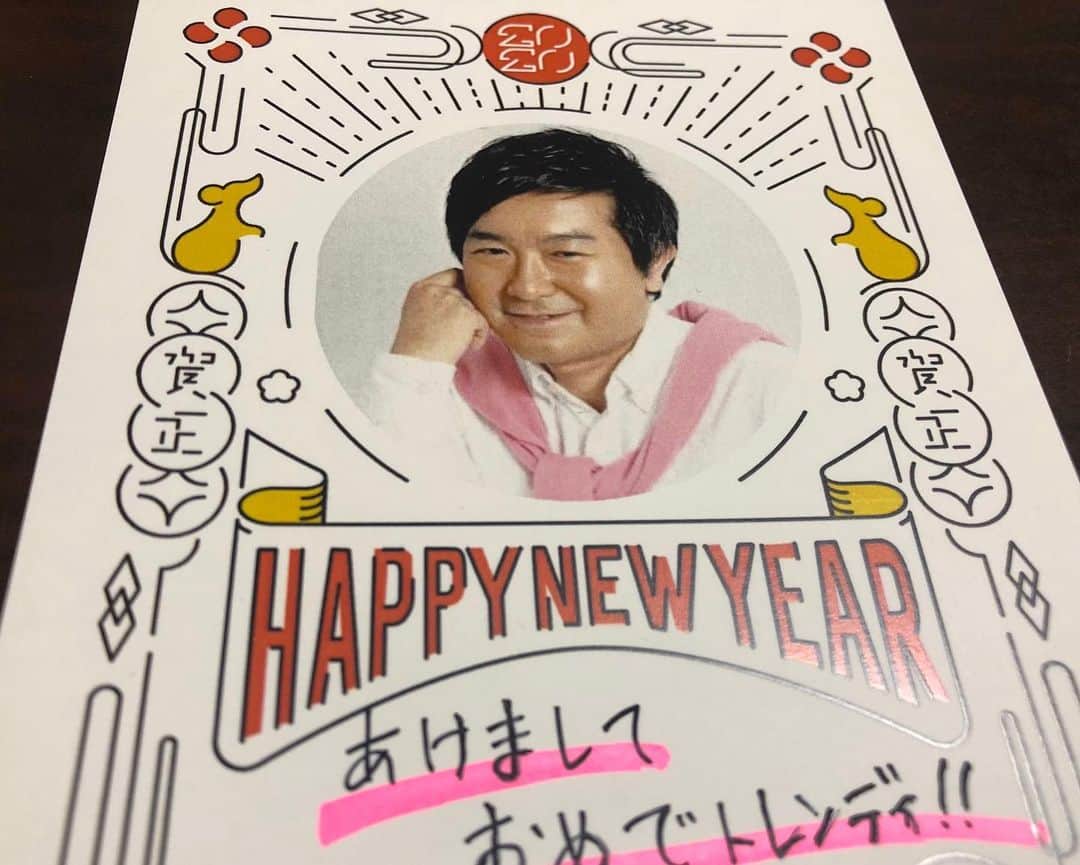 賀正
賀正
HAPPY NEW YEAR
あけまして
おめでトレンディ!!